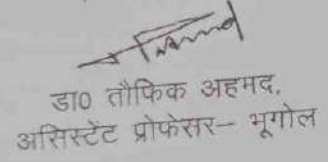 डा0 तौफिक अहमद,
असिस्टेंट प्रोफेसर– भूगोल